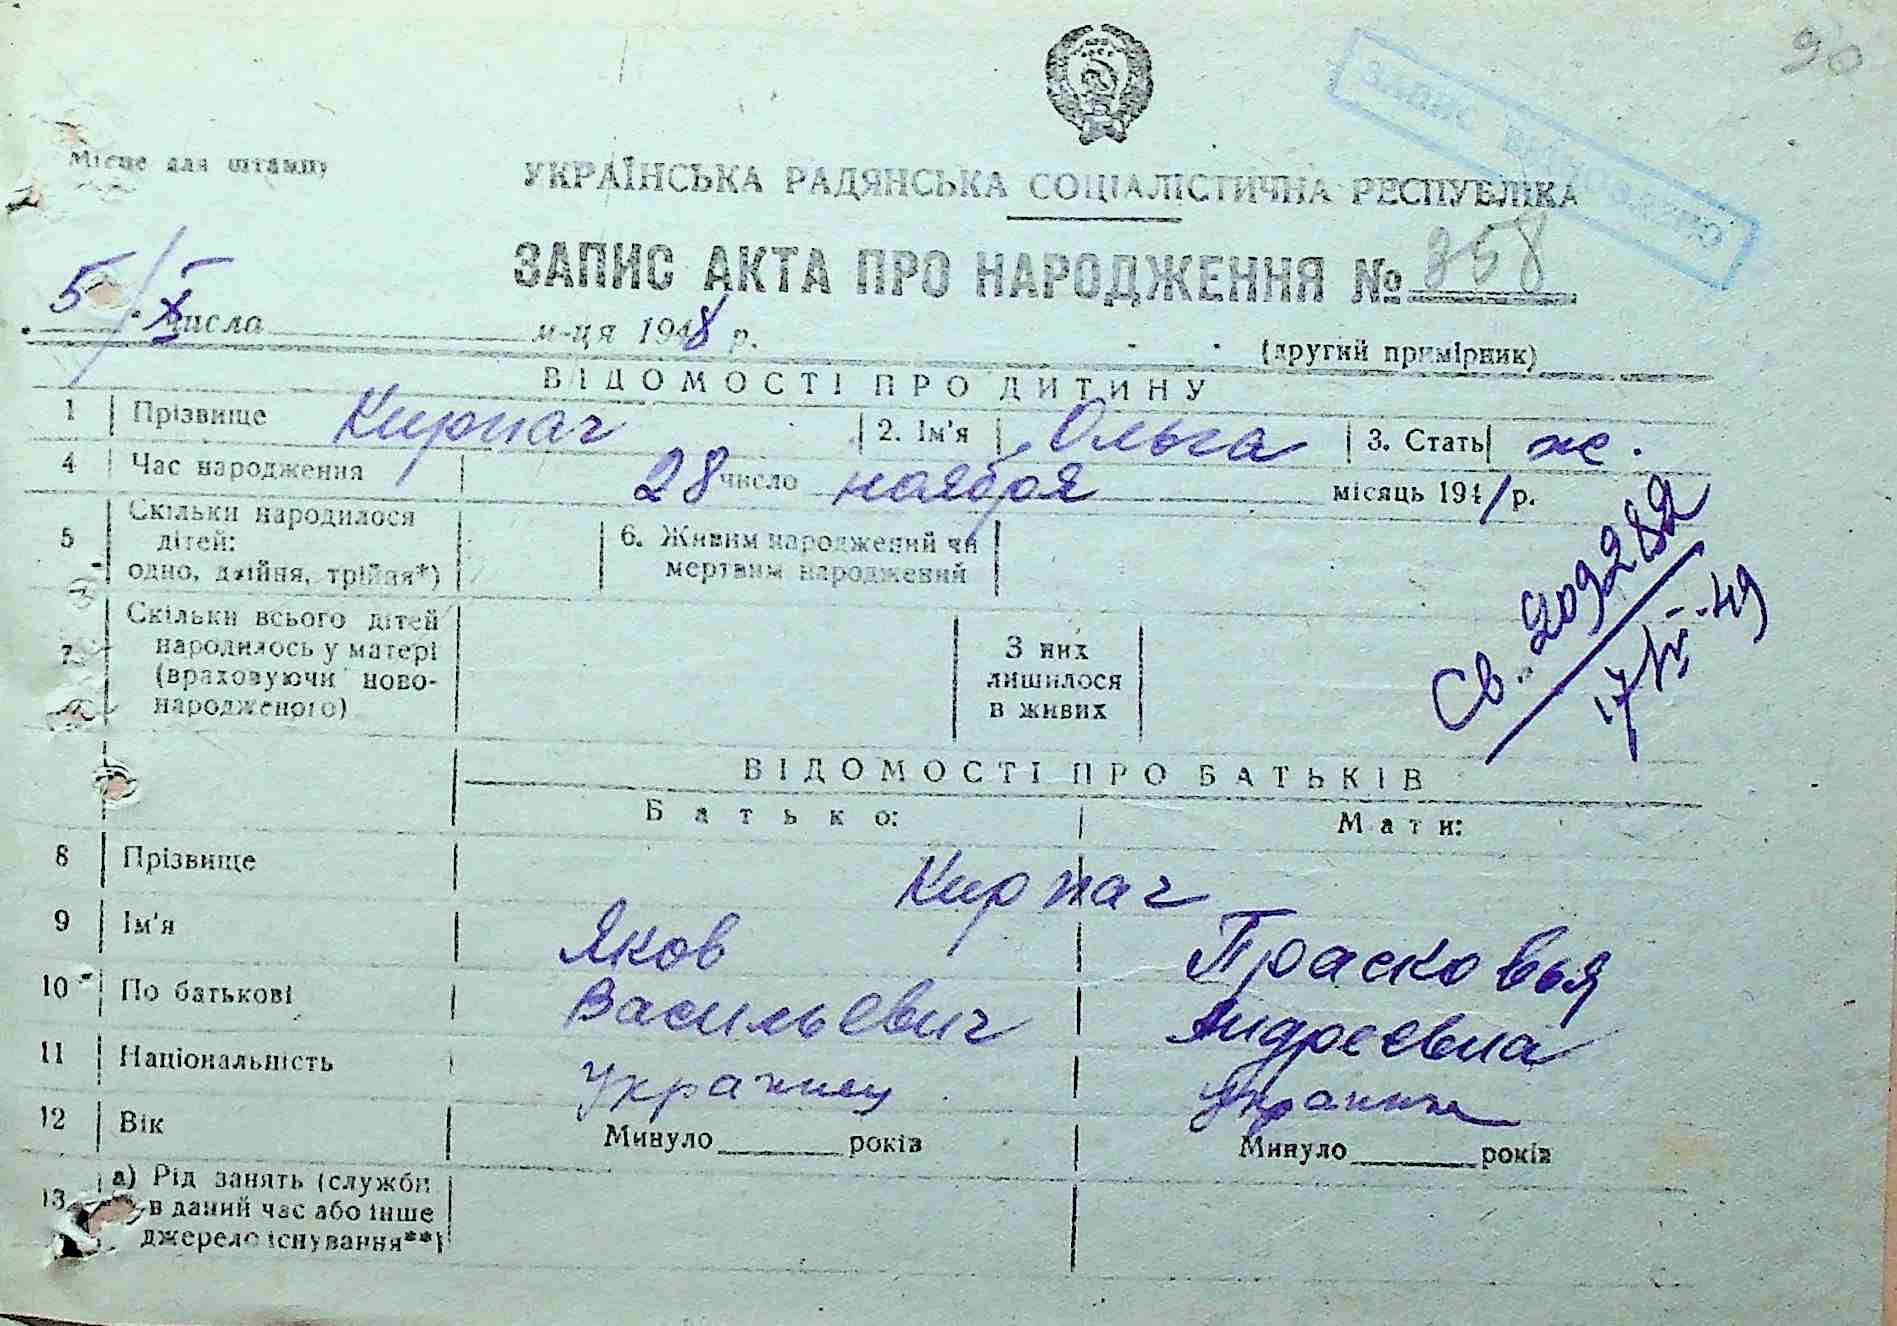 90
ЗАПИС ВІДНОВЛЕНИЙ
Місце для штампу
УКРАЇНСЬКА РАДЯНСЬКА СОЦІАЛІСТИЧНА РЕСПУБЛІКА
ЗАПИС АКТА ПРО НАРОДЖЕННЯ № 858
5/X числа м-ця 1948 р.
(другий примірник)
ВІДОМОСТІ ПРО ДИТИНУ
1 Прізвище Кирпач 2. Ім'я Ольга 3. Стать ж.
4 Час народження 28 число ноября місяць 1941 р.
5 Скільки народилося дітей: одно, двійня, трійня*) 6. Живим народжений чи мертвим народжений
Св. 209282
17/IV-49
7. Скільки всього дітей народилось у матері (враховуючи ново-народженого) З них лишилося в живих
ВІДОМОСТІ ПРО БАТЬКІВ
Батько: Мати:
8 Прізвище Кирпач
9 Ім'я Яков Прасковья
10 По батькові Васильевич Андреевна
11 Національність украинец украинка
12 Вік Минуло років Минуло років
13 а) Рід занять (служби в даний час або інше джерело існування**)